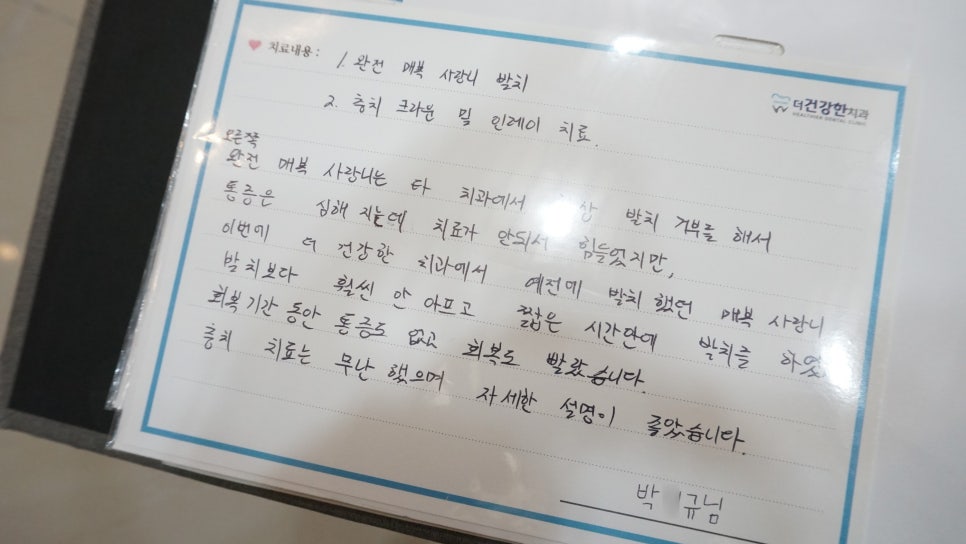 치료내용 : 1. 완전 매복 사랑니 발치
더건강한치과
HEALTHIER DENTAL CLINIC
2. 충치 크라운 및 인레이 치료.
오른쪽
완전 매복 사랑니는 타 치과에서 발치 거부를 해서
통증은 심해 지는데 치료가 안되서 힘들었지만,
이번에 더 건강한 치과에서 예전에 발치 했던 매복 사랑니
발치보다 훨씬 안 아프고 짧은 시간안에 발치를 하였
회복기간 동안 통증도 없고 회복도 빨랐습니다.
충치 치료는 무난 했으며 자세한 설명이 좋았습니다.
박 규님